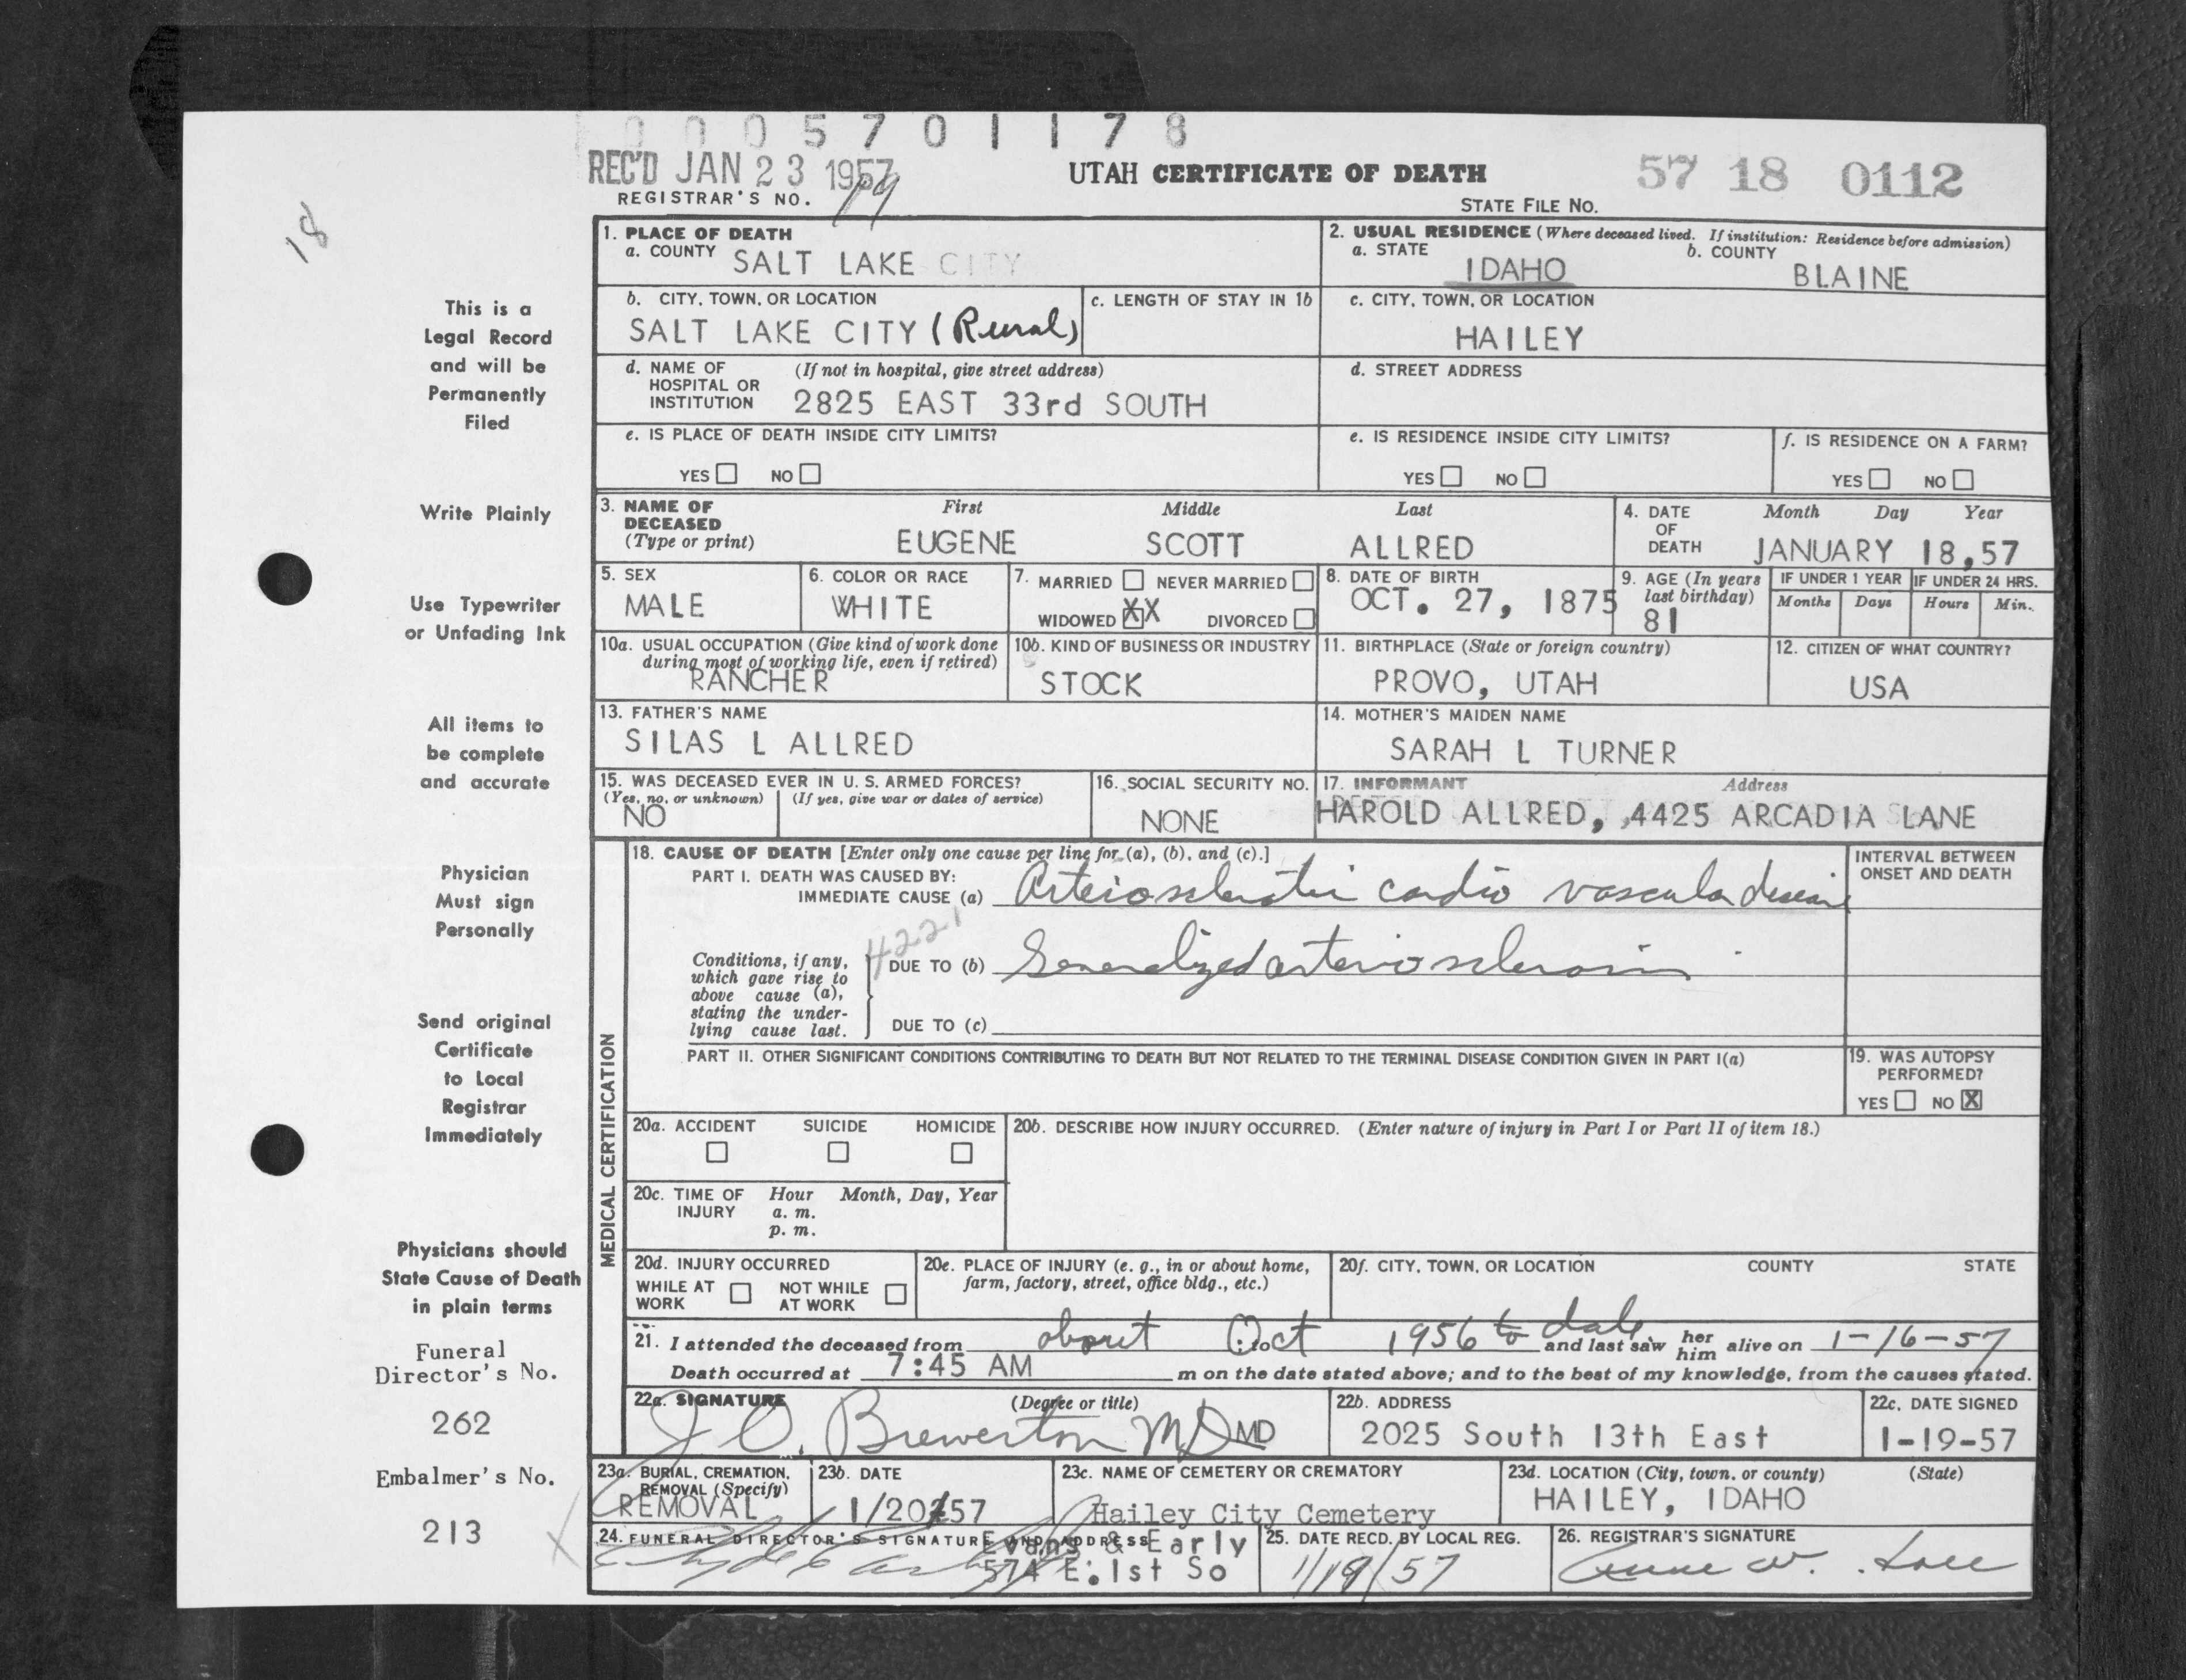 0005701178
REC'D JAN 23 1957
UTAH CERTIFICATE OF DEATH
57 18 0112
REGISTRAR'S NO. 119
STATE FILE NO.
18
1. PLACE OF DEATH
a. COUNTY SALT LAKE CITY
2. USUAL RESIDENCE (Where deceased lived. If institution: Residence before admission)
a. STATE IDAHO b. COUNTY BLAINE
b. CITY, TOWN, OR LOCATION
SALT LAKE CITY (Rural)
c. LENGTH OF STAY IN 1b
c. CITY, TOWN, OR LOCATION
HAILEY
d. NAME OF HOSPITAL OR INSTITUTION (If not in hospital, give street address)
2825 EAST 33rd SOUTH
d. STREET ADDRESS
e. IS PLACE OF DEATH INSIDE CITY LIMITS?
YES NO
e. IS RESIDENCE INSIDE CITY LIMITS?
YES NO
f. IS RESIDENCE ON A FARM?
YES NO
3. NAME OF DECEASED (Type or print)
First Middle Last
EUGENE SCOTT ALLRED
4. DATE OF DEATH
Month Day Year
JANUARY 18,57
5. SEX
MALE
6. COLOR OR RACE
WHITE
7. MARRIED NEVER MARRIED
WIDOWED XX DIVORCED
8. DATE OF BIRTH
OCT. 27, 1875
9. AGE (In years last birthday)
81
IF UNDER 1 YEAR
Months Days
IF UNDER 24 HRS.
Hours Min.
10a. USUAL OCCUPATION (Give kind of work done during most of working life, even if retired)
RANCHER
10b. KIND OF BUSINESS OR INDUSTRY
STOCK
11. BIRTHPLACE (State or foreign country)
PROVO, UTAH
12. CITIZEN OF WHAT COUNTRY?
USA
13. FATHER'S NAME
SILAS L ALLRED
14. MOTHER'S MAIDEN NAME
SARAH L TURNER
15. WAS DECEASED EVER IN U. S. ARMED FORCES?
(Yes, no, or unknown) (If yes, give war or dates of service)
NO
16. SOCIAL SECURITY NO.
NONE
17. INFORMANT Address
HAROLD ALLRED, 4425 ARCADIA LANE
MEDICAL CERTIFICATION
18. CAUSE OF DEATH [Enter only one cause per line for (a), (b), and (c).]
PART I. DEATH WAS CAUSED BY:
IMMEDIATE CAUSE (a) Arteriosclerotic cardio vascular disease
INTERVAL BETWEEN ONSET AND DEATH
4221
Conditions, if any, which gave rise to above cause (a), stating the underlying cause last.
DUE TO (b) Generalized arteriosclerosis
DUE TO (c)
PART II. OTHER SIGNIFICANT CONDITIONS CONTRIBUTING TO DEATH BUT NOT RELATED TO THE TERMINAL DISEASE CONDITION GIVEN IN PART I(a)
19. WAS AUTOPSY PERFORMED?
YES NO X
20a. ACCIDENT SUICIDE HOMICIDE
20b. DESCRIBE HOW INJURY OCCURRED. (Enter nature of injury in Part I or Part II of item 18.)
20c. TIME OF INJURY Hour Month, Day, Year
a. m.
p. m.
20d. INJURY OCCURRED
WHILE AT WORK NOT WHILE AT WORK
20e. PLACE OF INJURY (e. g., in or about home, farm, factory, street, office bldg., etc.)
20f. CITY, TOWN, OR LOCATION COUNTY STATE
21. I attended the deceased from about Oct 1956 to date and last saw her him alive on 1-16-57
Death occurred at 7:45 AM m on the date stated above; and to the best of my knowledge, from the causes stated.
22a. SIGNATURE (Degree or title)
J. O. Brewerton MD MD
22b. ADDRESS
2025 South 13th East
22c. DATE SIGNED
1-19-57
23a. BURIAL, CREMATION, REMOVAL (Specify)
REMOVAL
23b. DATE
1/20/57
23c. NAME OF CEMETERY OR CREMATORY
Hailey City Cemetery
23d. LOCATION (City, town, or county) (State)
HAILEY, IDAHO
24. FUNERAL DIRECTOR'S SIGNATURE AND ADDRESS
Evans & Early
574 E. 1st So
25. DATE RECD. BY LOCAL REG.
1/19/57
26. REGISTRAR'S SIGNATURE
This is a
Legal Record
and will be
Permanently
Filed
Write Plainly
Use Typewriter
or Unfading Ink
All items to
be complete
and accurate
Physician
Must sign
Personally
Send original
Certificate
to Local
Registrar
Immediately
Physicians should
State Cause of Death
in plain terms
Funeral
Director's No.
262
Embalmer's No.
213